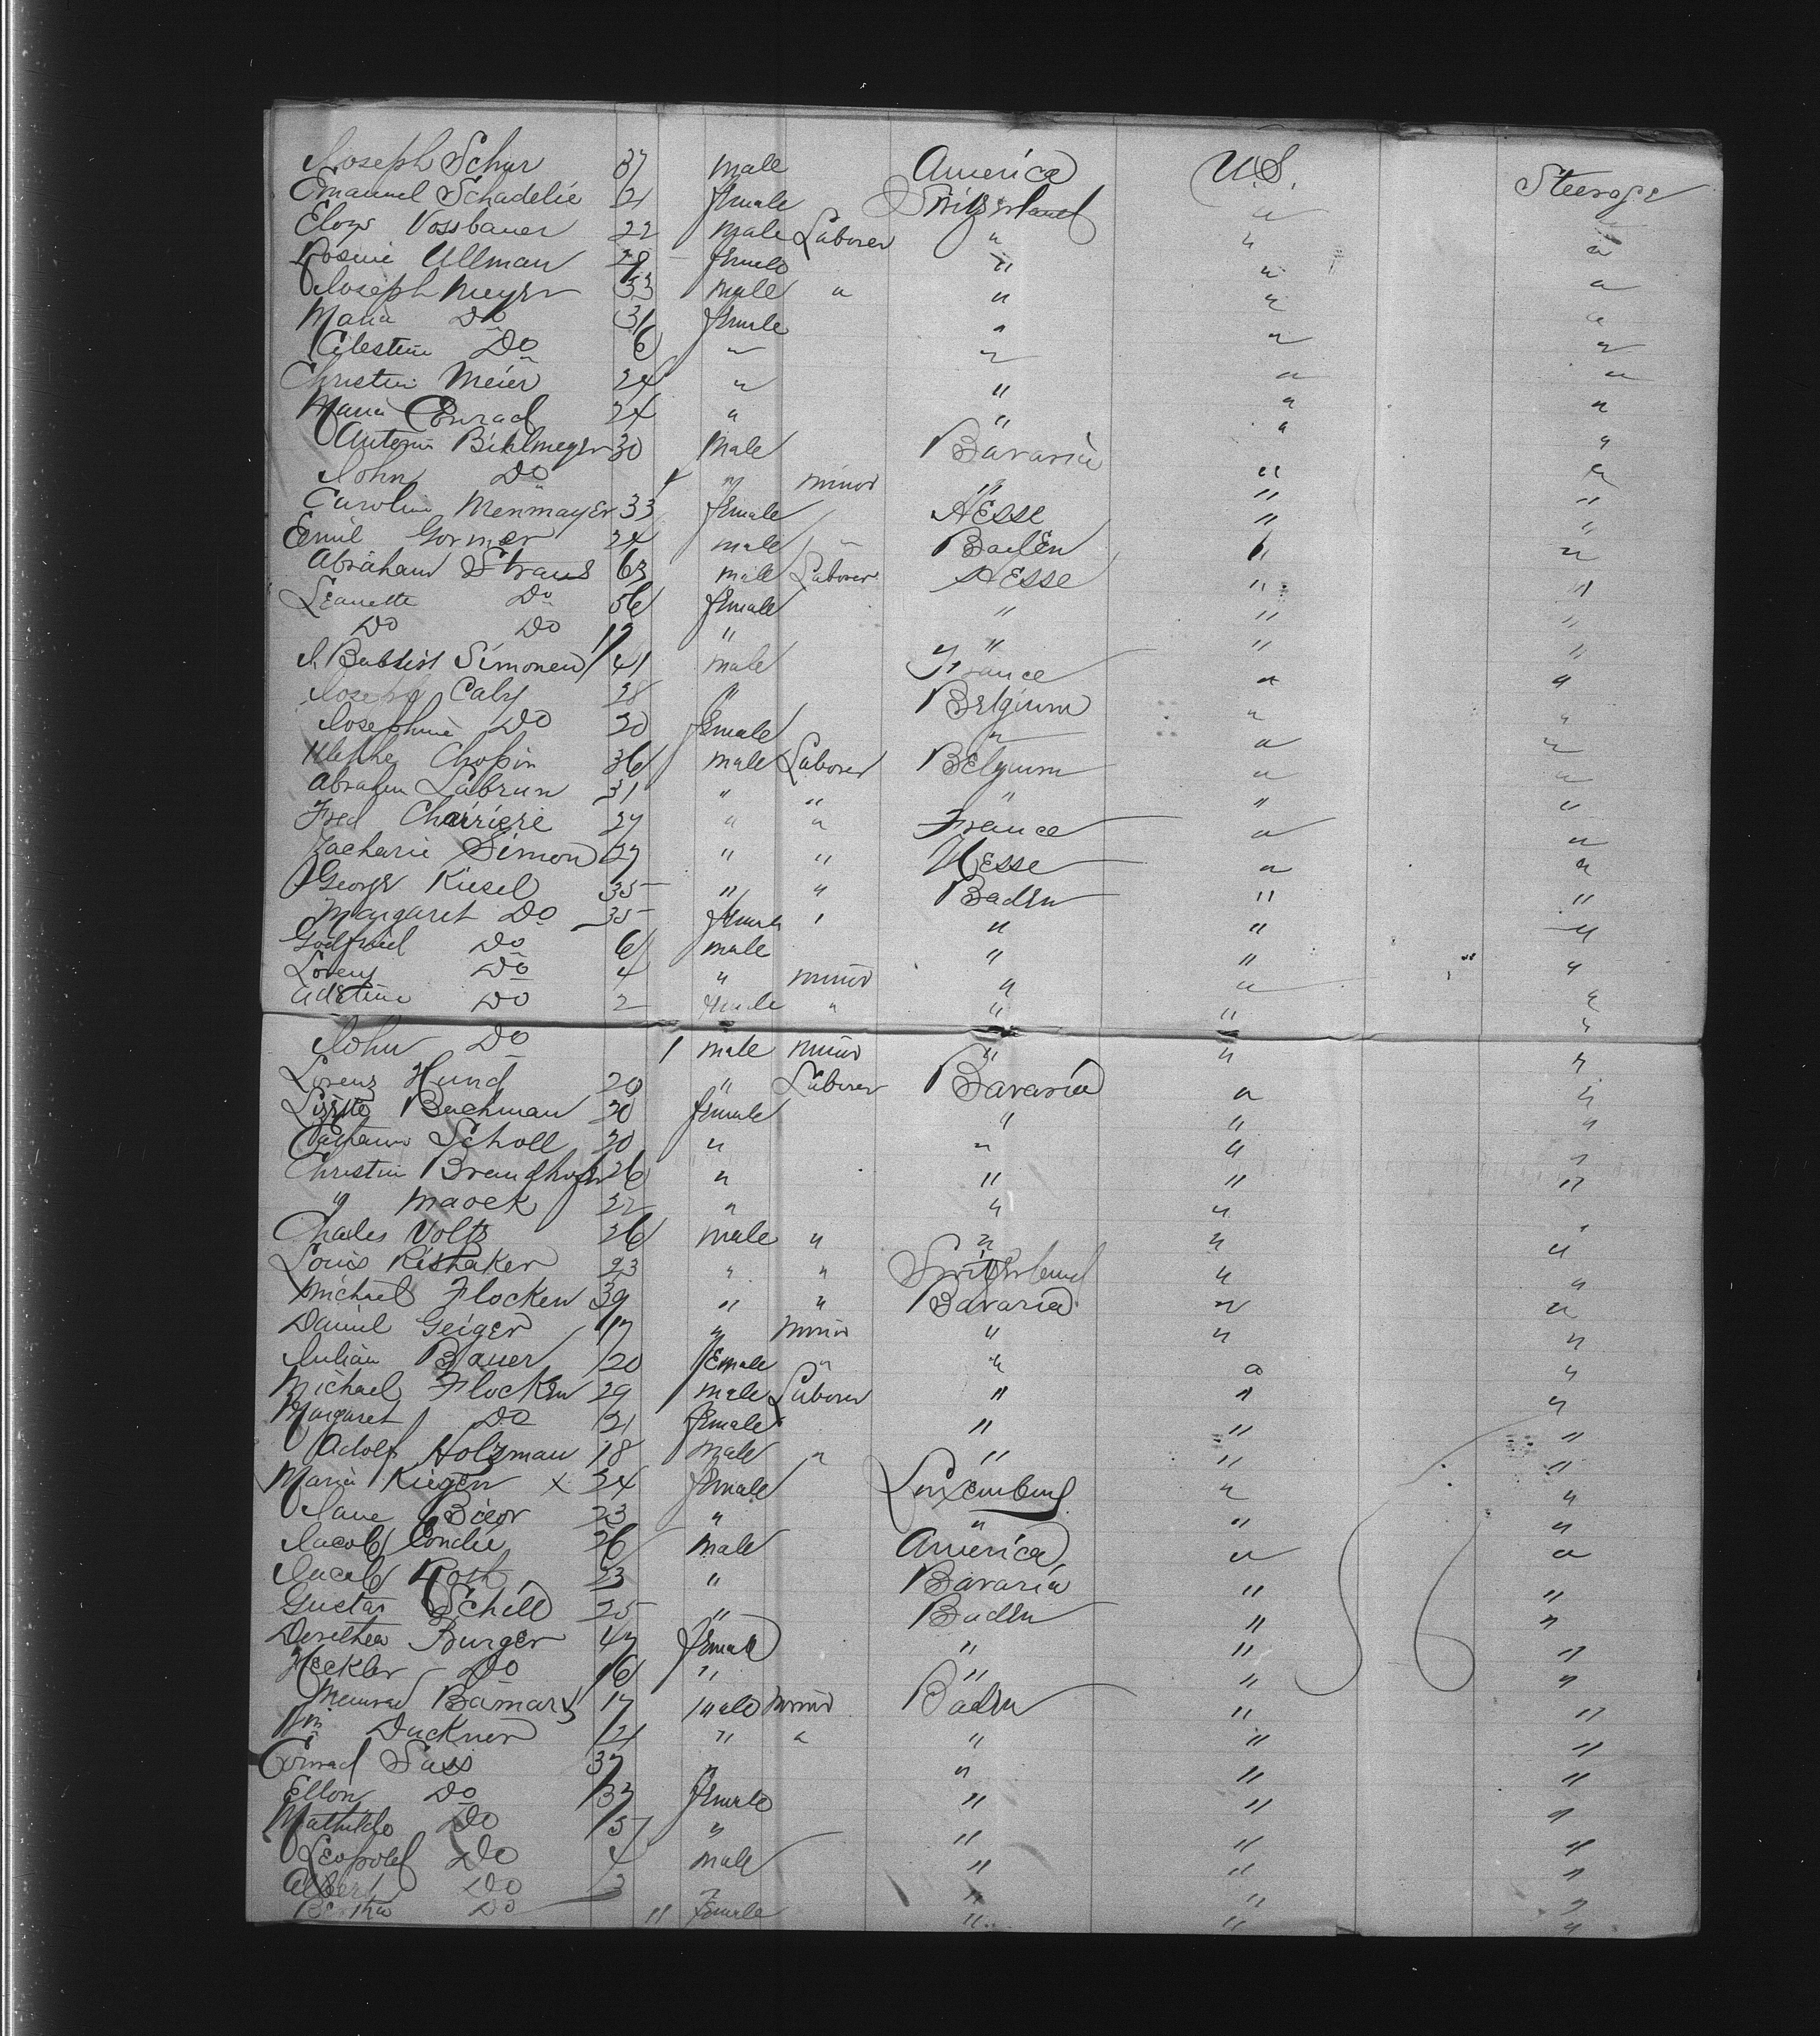 Joseph Schur 37 male America U.S. Steerage
Emanuel Schadelie 21 female Switzerland " "
Eloys Vossbauer 22 male Laborer " " "
Rosine Ullman 29 female " " "
Joseph Meyer 33 male " " " "
Maria Do 31 female " " "
Celestine Do 6 " " " "
Christine Meier 24 " " " "
Maria Conrad 24 " " " "
Antonin Bihlmeyer 30 Male Bavaria " "
John Do 4 " minor " " "
Caroline Menmayer 33 female Hesse " "
Emil Gormer 24 male " Baden " "
Abraham Straus 63 male Laborer Hesse " "
Leanette Do 56 female " " "
Do Do 19 " " " "
J. Babtist Simonen 41 male France " "
Joseph Caby 28 " Belgium " "
Josephine Do 20 female " " "
Chopin 36 male Laborer Belgium " "
Abraham Labrun 31 " " " " "
Fred Charriere 27 " " France " "
Zacharie Simon 27 " " Hesse " "
George Kiesel 35 " " Baden " "
Margaret Do 35 female " " " "
Godfried Do 6 male " " "
Lorenz Do 4 " minor " " "
Do 2 female " " " "
John Do 1 male minor " " "
Lorenz Hund 20 " Laborer Bavaria " "
Lizette Bachman 20 female " " "
Scholl 20 " " " "
Christine Brandhofer 26 " " " "
" Maock 22 " " " "
Charles Volts 26 male " " " "
Louis Rishaker 23 " " Switzerland " "
Michael Flocken 39 " " Bavaria " "
Daniel Geiger 17 " Minor " " "
Julian Bauer 20 female " " " "
Michael Flocken 29 male Laborer " " "
Margaret Do 21 female " " "
Adolf Holzman 18 Male " " " "
Maria Kiegen x 24 female Luxemburg " "
Jane 23 " " " "
Jacob Condie 26 male America " "
Jacob Rosh 23 " Bavaria " "
Gustav Schill 25 " Baden " "
Dorethea Burger 47 female " " "
Heckler Do 16 " " " "
Meinrad Bamarz 17 male minor Baden " "
Wm Duckner 21 " " " " "
Conrad Sass 37 " " " "
Ellon Do 33 female " " "
Mathilde Do 5 " " " "
Leopold Do 4 male " " "
Albert Do 3 " " " "
Bertha Do 11 female " " "